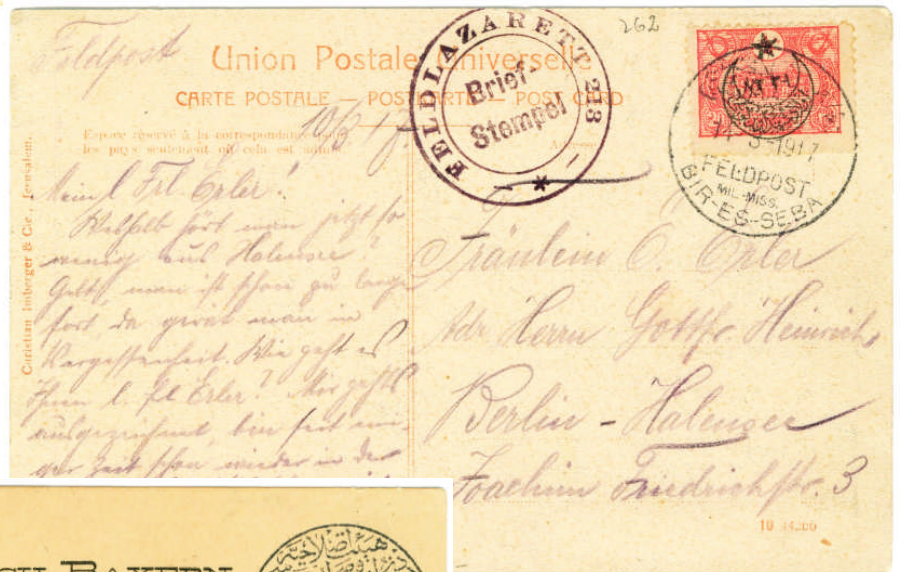 262
Feldpost
Union Postale Universelle
CARTE POSTALE — POSTKARTE — POST CARD
FELDLAZARETT 213
Brief-
Stempel
3-1917
FELDPOST
MIL.-MISS.
BIR-ES-SEBA
Espace réservé à la correspondance
les pays seulement où cela est admis
Christian Imberger & Cie., Jerusalem.
Mein l. Frl Erler!
Weshalb hört man jetzt so
wenig aus Halensee?
man ist schon zu lange
fort da gerät man in
Vergessenheit. Wie geht es
Ihnen l. Frl Erler? Mir gehts
ausgezeichnet, bin seit
ger Zeit schon wieder in der
Fräulein E. Erler
Adr. Herrn Gottfr. Heinrich
Berlin - Halensee
Joachim Friedrichstr. 3
BAYERN